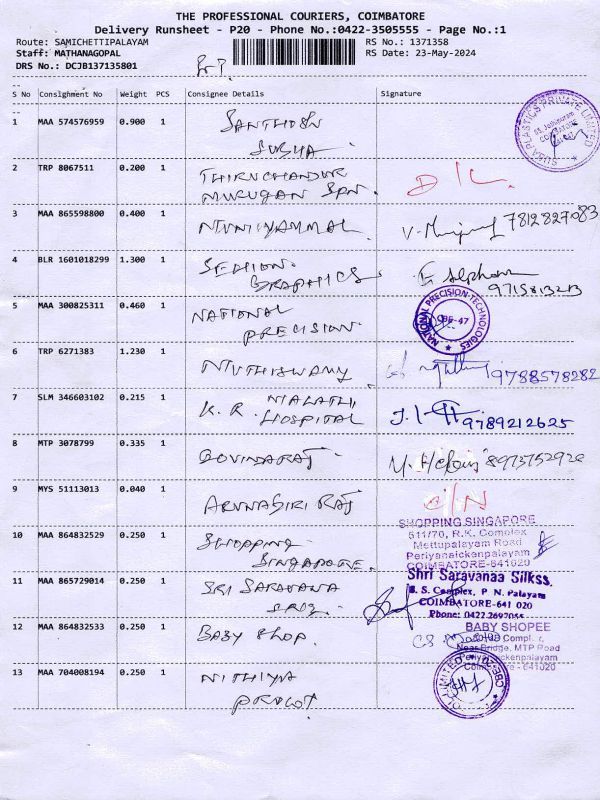 THE PROFESSIONAL COURIERS, COIMBATORE
Delivery Runsheet - P20 - Phone No.:0422-3505555 - Page No.:1
Route: SAMICHETTIPALAYAM
RS No.: 1371358
Staff: MATHANAGOPAL
RS Date: 23-May-2024
DRS No.: DCJB137135801
S No Consignment No Weight PCS Consignee Details Signature
1 MAA 574576959 0.900 1 SANTHOSH
SUBHA
SUBA PLASTICS PRIVATE LIMITED
COIMBATORE
2 TRP 8067511 0.200 1 THIRUCHANDUR
MURUGAN SPN. D/L
3 MAA 865598800 0.400 1 7812827083
4 BLR 1601018299 1.300 1 SEDHION
GRAPHICS 9715813213
5 MAA 300825311 0.460 1 NATIONAL
PRECISION
NATIONAL PRECISION TECHNOLOGIES
CBE-47
6 TRP 6271383 1.230 1 MUTHUSWAMY 9788578282
7 SLM 346603102 0.215 1 K. R. HOSPITAL 9789212625
8 MTP 3078799 0.335 1 GOVINDARAJ
9 MYS 51113013 0.040 1 ARUNAGIRI RAJ
10 MAA 864832529 0.250 1 SHOPPING
SINGAPORE
SHOPPING SINGAPORE
511/70, R.K. Complex
Mettupalayam Road
Periyanaickenpalayam
COIMBATORE-641020
11 MAA 865729014 0.250 1 SRI SARAVANA
Shri Saravanaa Silkss
S. S. Complex, P N. Palayam
COIMBATORE-641 020
Phone: 0422 2697055
12 MAA 864832533 0.250 1 BABY SHOP.
BABY SHOPEE
Near Bridge, MTP Road
Periyanaickenpalayam
Coimbatore - 641020
13 MAA 704008194 0.250 1 NITHIYA
PRICOT